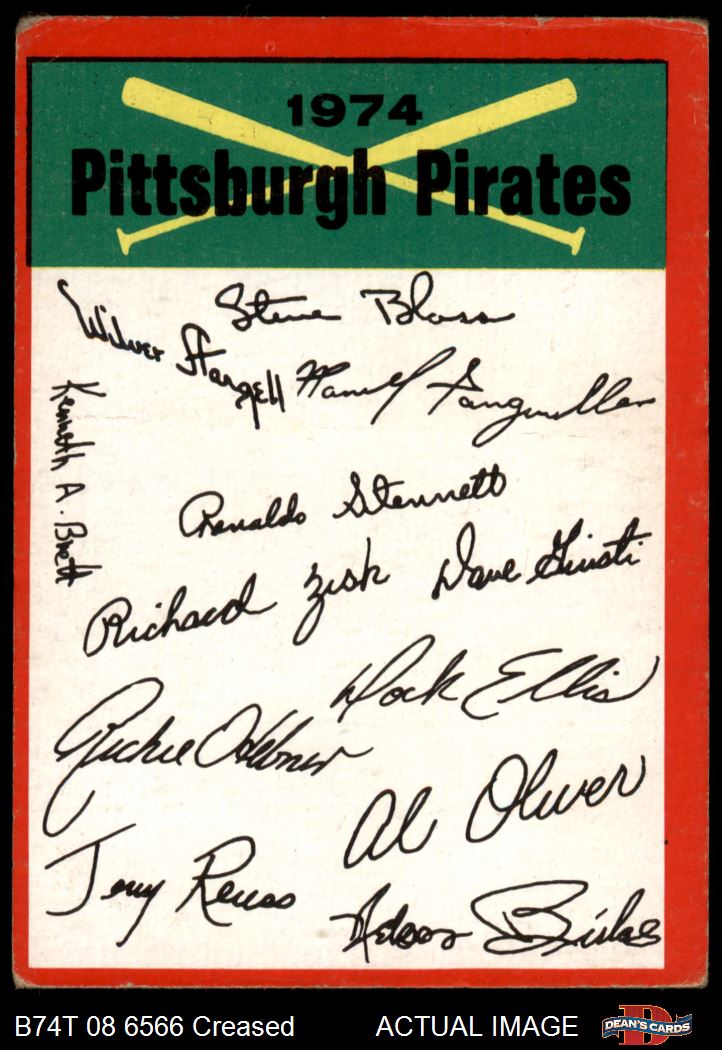 1974
Pittsburgh Pirates
Steve Blass
Wilver Stargell
Manuel Sanguillen
Kenneth A. Brett
Renaldo Stennett
Richard Zisk
Dave Giusti
Dock Ellis
Richie Hebner
Al Oliver
Jerry Reuss
Nelson Briles
B74T 08 6566 Creased
ACTUAL IMAGE
D
DEAN'S CARDS